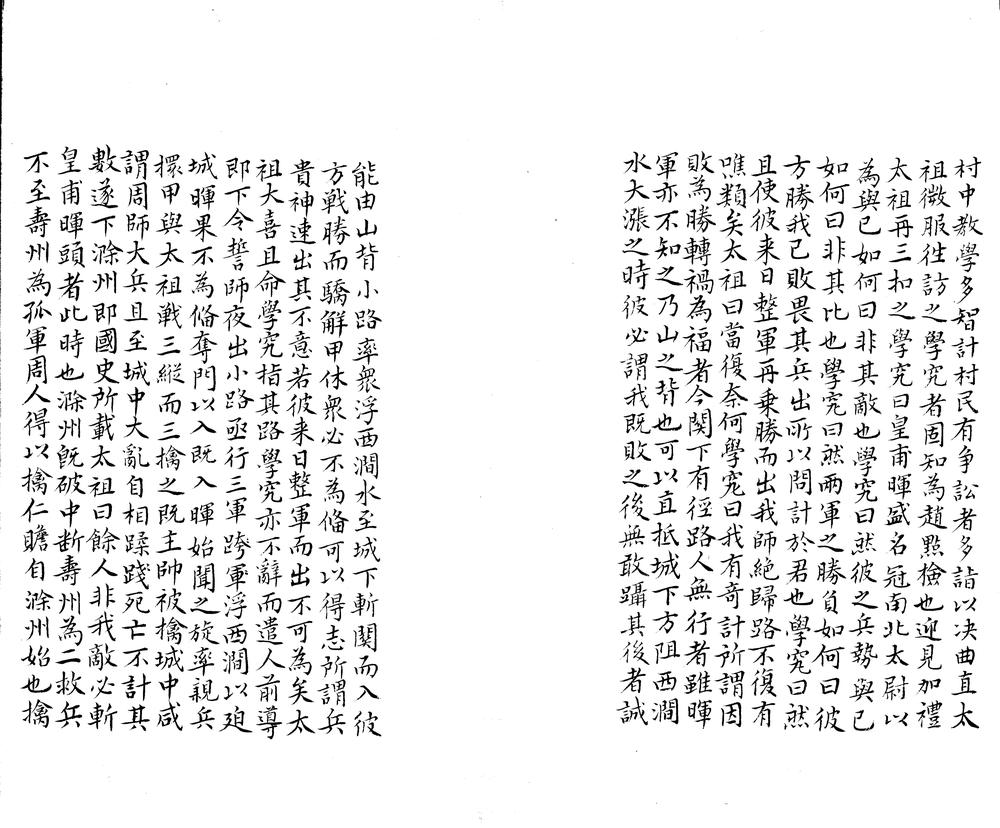 村中教學多智計村民有争訟者多詣以决曲直太
祖微服徃訪之學究者固知為趙㸃檢也迎見加禮
太祖再三扣之學究曰皇甫暉盛名冠南北太尉以
為與已如何曰非其敵也學究曰然彼之兵勢與已
如何曰非其比也學究曰然兩軍之勝負如何曰彼
方勝我已敗畏其兵出所以問計於君也學究曰然
且使彼来日整軍再乗勝而出我師絶歸路不復有
噍類矣太祖曰當復奈何學究曰我有奇計所謂因
敗為勝轉禍為福者今関下有徑路人無行者雖暉
軍亦不知之乃山之背也可以直抵城下方阻西澗
水大漲之時彼必謂我既敗之後無敢躡其後者誠
能由山背小路率衆浮西澗水至城下斬関而入彼
方戦勝而驕解甲休衆必不為俻可以得志所謂兵
貴神連出其不意若彼来日整軍而出不可為矣太
祖大喜且命學究指其路學究亦不辭而遣人前導
即下令誓師夜出小路亟行三軍跨軍浮西澗以廹
城暉果不為俻奪門以入既入暉始聞之旋率親兵
擐甲與太祖戦三縱而三擒之既主帥被擒城中咸
謂周師大兵且至城中大亂自相蹂踐死亡不計其
數遂下滁州即國史所載太祖曰餘人非我敵必斬
皇甫暉頭者此時也滁州既破中断壽州為二救兵
不至壽州為孤軍周人得以擒仁贍自滁州始也擒